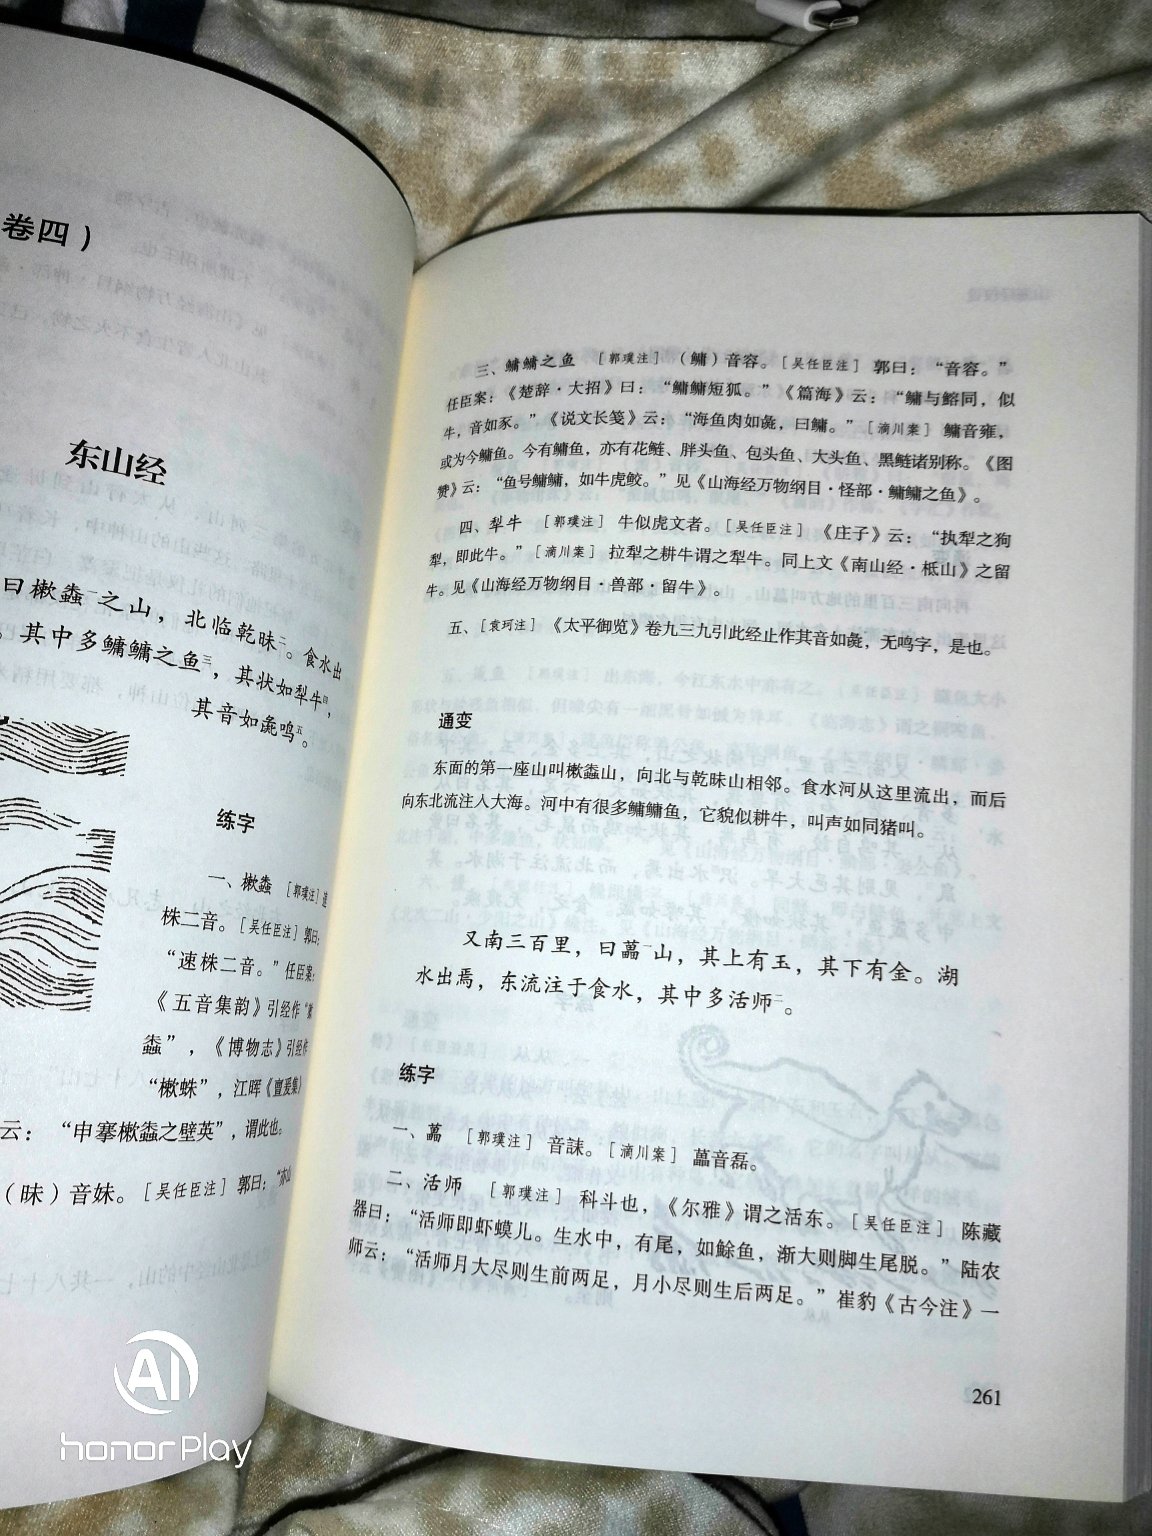 卷四）
东山经
曰樕螽一之山，北临乾昧二。食水出
其中多鳙鳙之鱼三，其状如犁牛四，
其音如彘鸣五。
练字
一、樕螽 ［郭璞注］速
株二音。［吴任臣注］郭曰：
“速株二音。”任臣案：
《五音集韵》引经作“
螽”，《博物志》引经作
“樕蛛”，江晖《亶爰集》
云：“申搴樕螽之壁英”，谓此也。
（昧）音妹。［吴任臣注］郭曰：“亦山
三、鳙鳙之鱼 ［郭璞注］（鳙）音容。［吴任臣注］郭曰：“音容。”
任臣案：《楚辞·大招》曰：“鳙鳙短狐。”《篇海》云：“鳙与鰫同，似
牛，音如豕。”《说文长笺》云：“海鱼肉如彘，曰鳙。”［滴川案］鳙音雍，
或为今鳙鱼。今有鳙鱼，亦有花鲢、胖头鱼、包头鱼、大头鱼、黑鲢诸别称。《图
赞》云：“鱼号鳙鳙，如牛虎鲛。”见《山海经万物纲目·怪部·鳙鳙之鱼》。
四、犁牛 ［郭璞注］牛似虎文者。［吴任臣注］《庄子》云：“执犁之狗
犁，即此牛。”［滴川案］拉犁之耕牛谓之犁牛。同上文《南山经·柢山》之留
牛。见《山海经万物纲目·兽部·留牛》。
五、［袁珂注］《太平御览》卷九三九引此经止作其音如彘，无鸣字，是也。
通变
东面的第一座山叫樕螽山，向北与乾昧山相邻。食水河从这里流出，而后
向东北流注入大海。河中有很多鳙鳙鱼，它貌似耕牛，叫声如同猪叫。
又南三百里，曰藟一山，其上有玉，其下有金。湖
水出焉，东流注于食水，其中多活师二。
练字
一、藟 ［郭璞注］音誄。［滴川案］藟音磊。
二、活师 ［郭璞注］科斗也，《尔雅》谓之活东。［吴任臣注］陈藏
器曰：“活师即虾蟆儿。生水中，有尾，如鮽鱼，渐大则脚生尾脱。”陆农
师云：“活师月大尽则生前两足，月小尽则生后两足。”崔豹《古今注》一
261
AI
honor Play